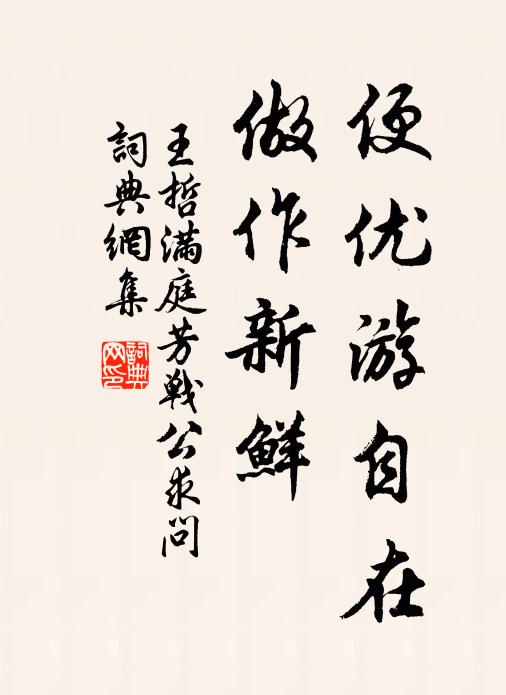 便优游自在
做作新鲜
王哲满庭芳戰公求问
詞典網集
詞典网印